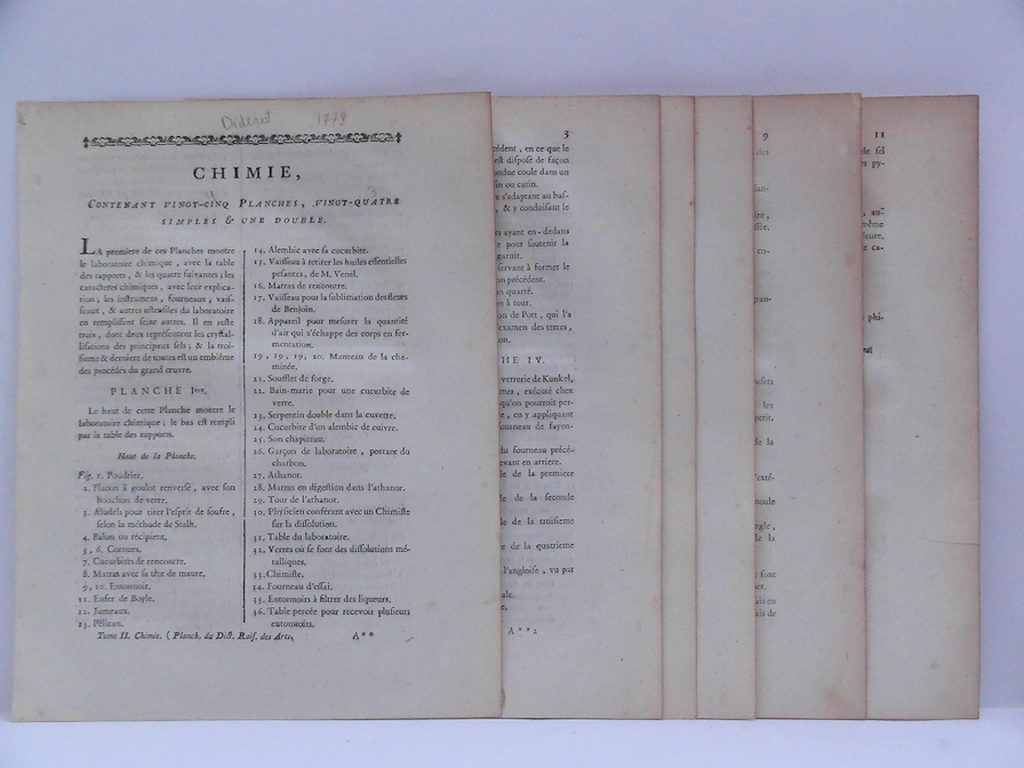 Diderot 1778
CHIMIE,
CONTENANT VINGT-CINQ PLANCHES, VINGT-QUATRE
SIMPLES & UNE DOUBLE.
LA premiere de ces Planches montre
le laboratoire chimique, avec la table
des rapports, & les quatre suivantes; les
caracteres chimiques, avec leur explica-
tion; les instrumens, fourneaux, vais-
seaux, & autres ustensiles du laboratoire
en remplissent seize autres. Il en reste
trois, dont deux représentent les crystal-
lisations des principaux sels; & la troi-
sieme & derniere de toutes est un emblème
des procédés du grand œuvre.
PLANCHE Iere.
Le haut de cette Planche montre le
laboratoire chimique; le bas est rempli
par la table des rapports.
Haut de la Planche.
Fig. 1. Poudrier.
2. Flacon à goulot renversé, avec son
bouchon de verre.
3. Aludels pour tirer l'esprit de soufre,
selon la méthode de Stalh.
4. Balon ou récipient.
5, 6. Cornues.
7. Cucurbites de rencontre.
8. Matras avec sa tête de maure.
9, 10. Entonnoir.
11. Enfer de Boyle.
12. Jumeaux.
13. Pélican.
14. Alembic avec sa cucurbite.
15. Vaisseau à retirer les huiles essentielles
pesantes, de M. Venel.
16. Matras de rencontre.
17. Vaisseau pour la sublimation des fleurs
de Benjoin.
18. Appareil pour mesurer la quantité
d'air qui s'échappe des corps en fer-
mentation.
19, 19, 19, 20. Manteau de la che-
minée.
21. Soufflet de forge.
22. Bain-marie pour une cucurbite de
verre.
23. Serpentin double dans la cuvette.
24. Cucurbite d'un alembic de cuivre.
25. Son chapiteau.
26. Garçon de laboratoire, portant du
charbon.
27. Athanor.
28. Matras en digestion dans l'athanor.
29. Tour de l'athanor.
30. Physicien conférant avec un Chimiste
sur la dissolution.
31. Table du laboratoire.
32. Verres où se font des dissolutions mé-
talliques.
33. Chimiste.
34. Fourneau d'essai.
35. Entonnoirs à filtrer des liqueurs.
36. Table percée pour recevoir plusieurs
entonnoirs.
Tome II. Chimie. (Planch. du Dict. Rais. des Arts.
A**
3
cédent, en ce que le
est disposé de façon
ondue coule dans un
in ou catin.
e s'adaptant au bas-
, & y conduisant le
es ayant en-dedans
e pour soutenir la
garnir.
servant à former le
on précédent.
on quarré.
n à tour.
on de Pott, qui l'a
examen des terres,
on.
HE IV.
verrerie de Kunkel,
mer, exécuté chez
qu'on pourroit per-
e, en y appliquant
ourneau de fayen-
du fourneau précé-
evant en arriere.
le de la premiere
le de la seconde
le de la troisieme
e de la quatrieme
l'angloise, vu par
ale.
e.
A**2
9
des
ian-
ire,
ssée.
co-
ran-
les
petit.
de la
'exté-
noule
ngle,
le la
font
er.
is en
is de
11
de sel
es py-
, au-
même
ieure.
e ca-
phi-